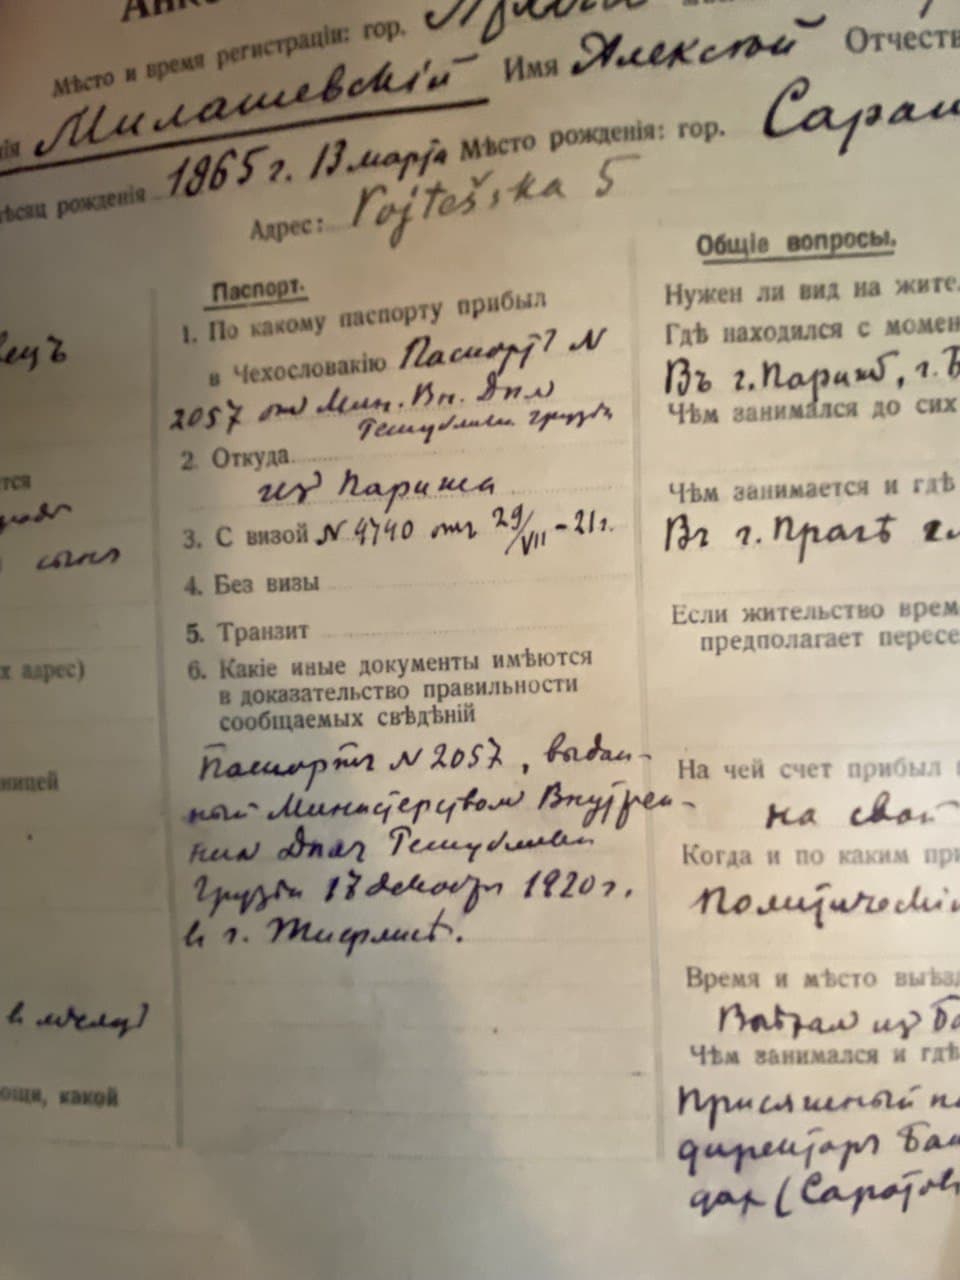 Мѣсто и время регистраціи: гор.
Милашевскій Имя Алексѣй Отчеств
рожденія 1865 г. 13 марта Мѣсто рожденія: гор. Саран
Адрес: Vojtěšska 5
Паспорт.
1. По какому паспорту прибыл
в Чехословакію Паспортъ N
2057 от Мин. Вн. Дѣл
Республики Грузіи
2. Откуда
из Парижа
3. С визой N 4740 от 29/VII - 21 г.
4. Без визы
5. Транзит
6. Какіе иные документы имѣются
в доказательство правильности
сообщаемых свѣдѣній
Паспортъ N 2057, выдан-
ный Министерством Внутрен-
них Дѣл Республики
Грузіи 17 декабря 1920 г.
в г. Тифлисѣ.
Общіе вопросы.
Нужен ли вид на жите
Гдѣ находился с момен
Въ г. Парижѣ, г. Б
Чѣм занимался до сих
Чѣм занимается и гдѣ
Въ г. Прагѣ
Если жительство врем
предполагает пересе
На чей счет прибыл
на свой
Когда и по каким при
Политическі
Время и мѣсто выѣзд
Выѣхал из Ба
Чѣм занимался и гдѣ
Присяжный по
директоръ Бан
дах (Саратов
ецъ
тся
х адрес)
ницей
ощи, какой